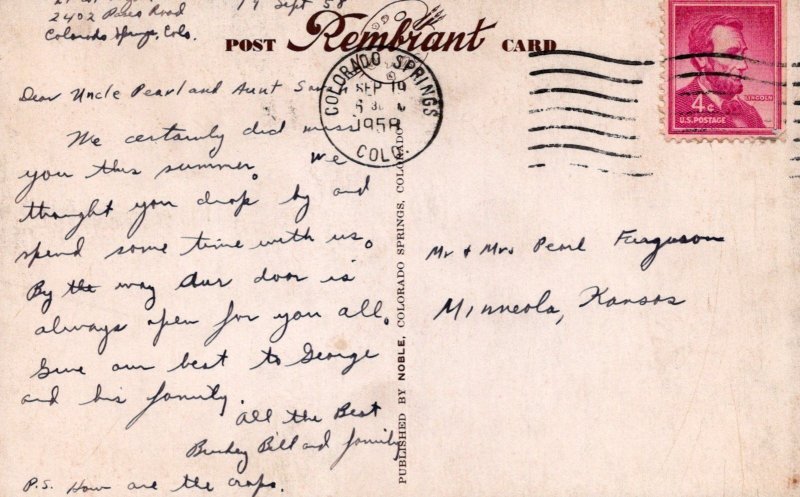 2402 Paseo Road
Colorado Springs, Colo.
19 Sept 58
POST Rembrant CARD
COLORADO SPRINGS
SEP 19
1958
COLO.
4¢
LINCOLN
U.S. POSTAGE
Dear Uncle Pearl and Aunt
We certainly did miss
you this summer. We
thought you drop by and
spend some time with us.
By the way Our door is
always open for you all.
Give our best to George
and his family.
All the Best
Bill and family
P.S. How are the crops.
PUBLISHED BY NOBLE, COLORADO SPRINGS, COLORADO
Mr & Mrs Pearl Ferguson
Minneola, Kansas